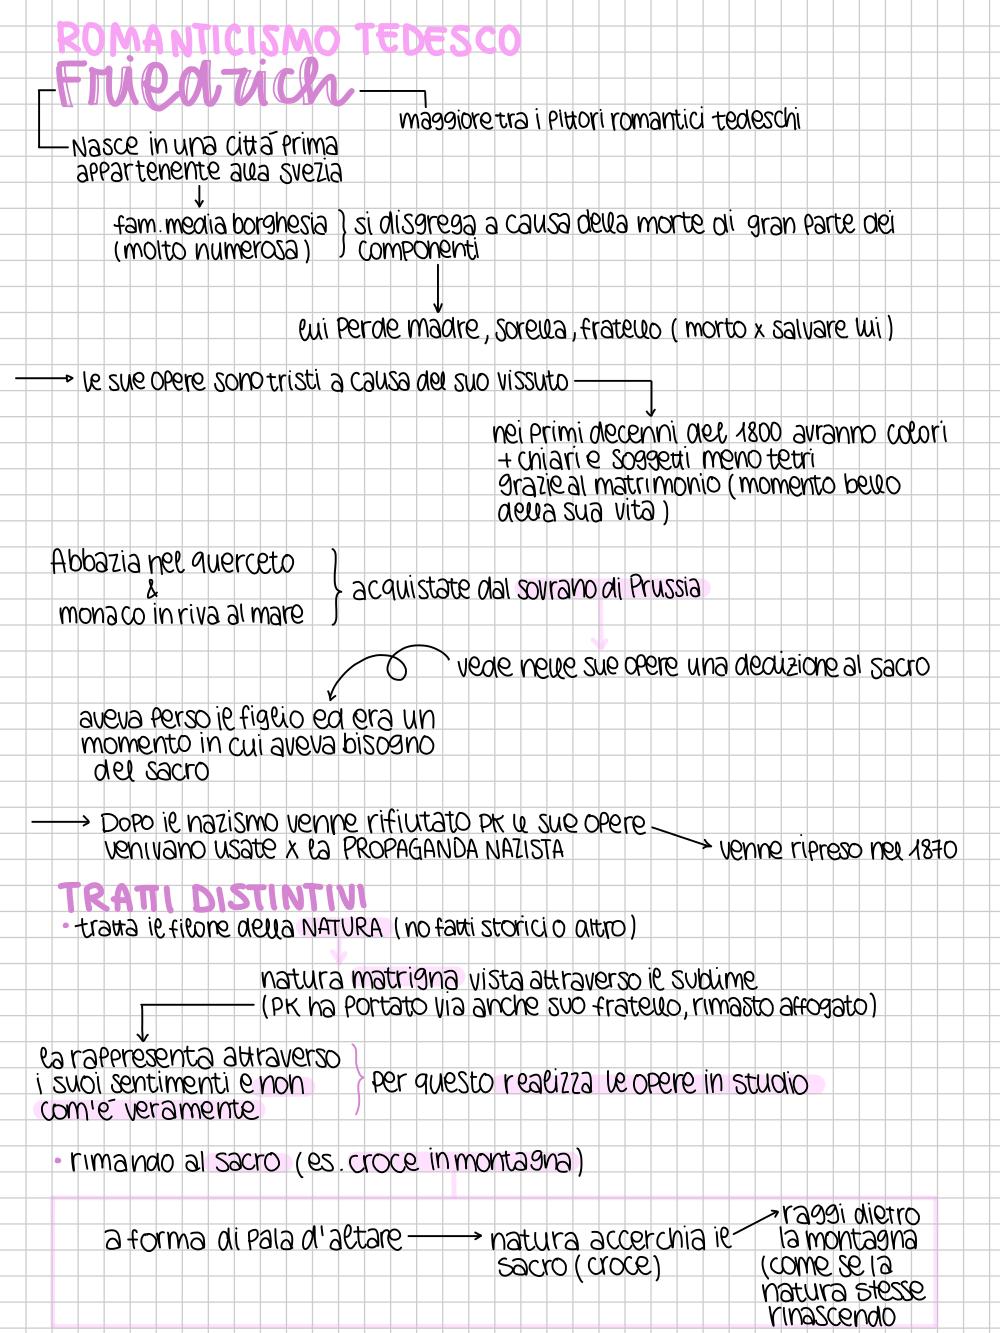 ROMANTICISMO TEDESCO
Friedrich
maggiore tra i pittori romantici tedeschi
Nasce in una città prima
appartenente alla svezia
fam. media borghesia } si disgrega a causa della morte di gran parte dei
(molto numerosa) componenti
lui perde madre, sorella, fratello (morto x salvare lui)
le sue opere sono tristi a causa del suo vissuto
nei primi decenni del 1800 avranno colori
+ chiari e soggetti meno tetri
grazie al matrimonio (momento bello
della sua vita)
Abbazia nel querceto
&
monaco in riva al mare
acquistate dal sovrano di Prussia
vede nelle sue opere una dedizione al sacro
aveva perso il figlio ed era un
momento in cui aveva bisogno
del sacro
Dopo il nazismo venne rifiutato pk le sue opere
venivano usate x la PROPAGANDA NAZISTA
venne ripreso nel 1870
TRATTI DISTINTIVI
• tratta il filone della NATURA (no fatti storici o altro)
natura matrigna vista attraverso il sublime
(pk ha portato via anche suo fratello, rimasto affogato)
la rappresenta attraverso
i suoi sentimenti e non
com'è veramente
per questo realizza le opere in studio
• rimando al sacro (es. croce in montagna)
a forma di pala d'altare
natura accerchia il
sacro (croce)
raggi dietro
la montagna
(come se la
natura stesse
rinascendo